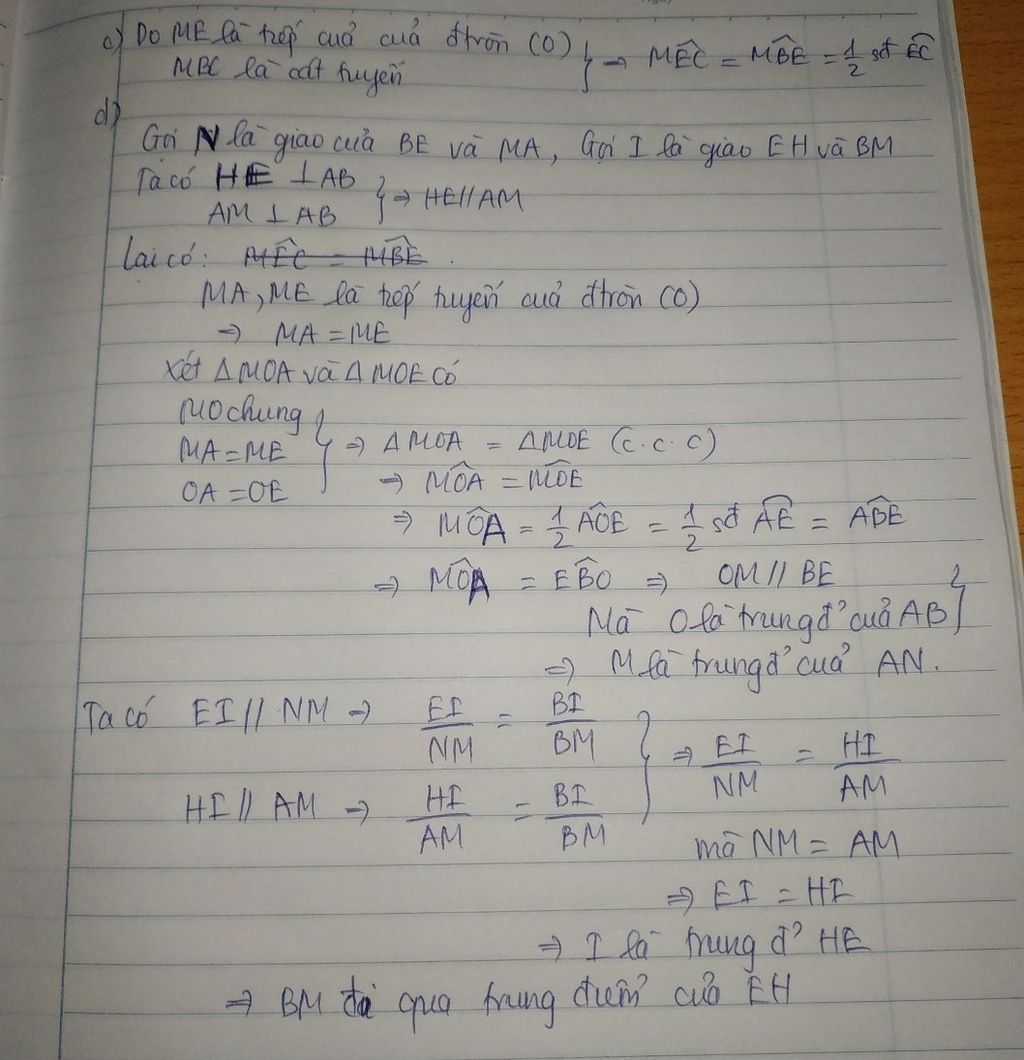 c) Do ME là tiếp cuả cuả đtròn (O)
MBC là cát tuyến
} → MÊC = MB̂E = 1/2 sđ EC
d)
Gọi N là giao của BE và MA, Gọi I là giao EH và BM
Ta có HE ⊥ AB
AM ⊥ AB
} → HE // AM
Lại có: MÊC = MB̂E.
MA, ME là tiếp tuyến cuả đtròn (O)
⇒ MA = ME
Xét ΔMOA và ΔMOE có
MO chung
MA = ME
OA = OE
} ⇒ ΔMOA = ΔMOE (c.c.c)
⇒ MÔA = MÔE
⇒ MÔA = 1/2 AÔE = 1/2 sđ AE = AB̂E
⇒ MÔA = EB̂O ⇒ OM // BE
Mà O là trung đ' cuả AB }
⇒ M là trung đ' cuả AN.
Ta có EI // NM → EI/NM = BI/BM
HI // AM → HI/AM = BI/BM
} ⇒ EI/NM = HI/AM
mà NM = AM
⇒ EI = HI
⇒ I là trung đ' HE
⇒ BM đi qua trung điểm của EH